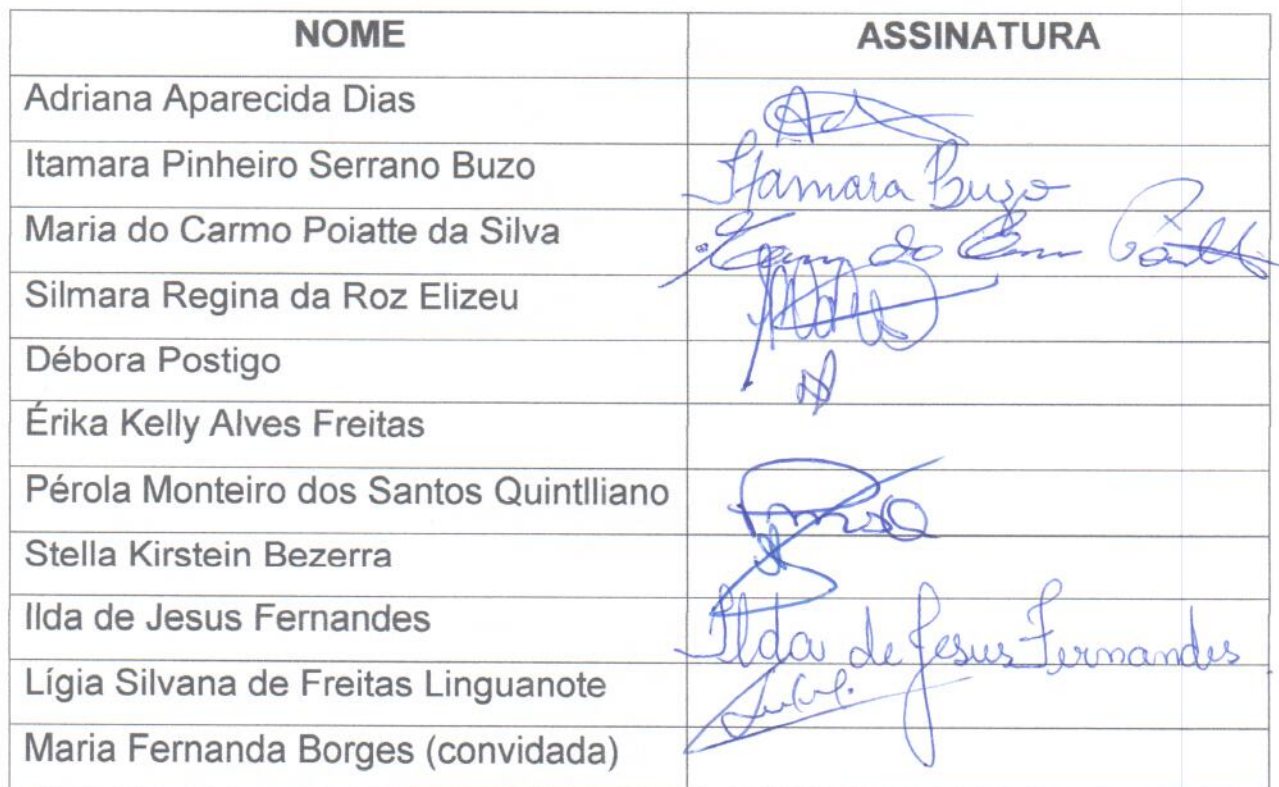 NOME ASSINATURA
Adriana Aparecida Dias
Itamara Pinheiro Serrano Buzo Itamara Buzo
Maria do Carmo Poiatte da Silva do
Silmara Regina da Roz Elizeu
Débora Postigo
Érika Kelly Alves Freitas
Pérola Monteiro dos Santos Quintlliano
Stella Kirstein Bezerra
Ilda de Jesus Fernandes Ilda de Jesus Fernandes
Lígia Silvana de Freitas Linguanote
Maria Fernanda Borges (convidada)